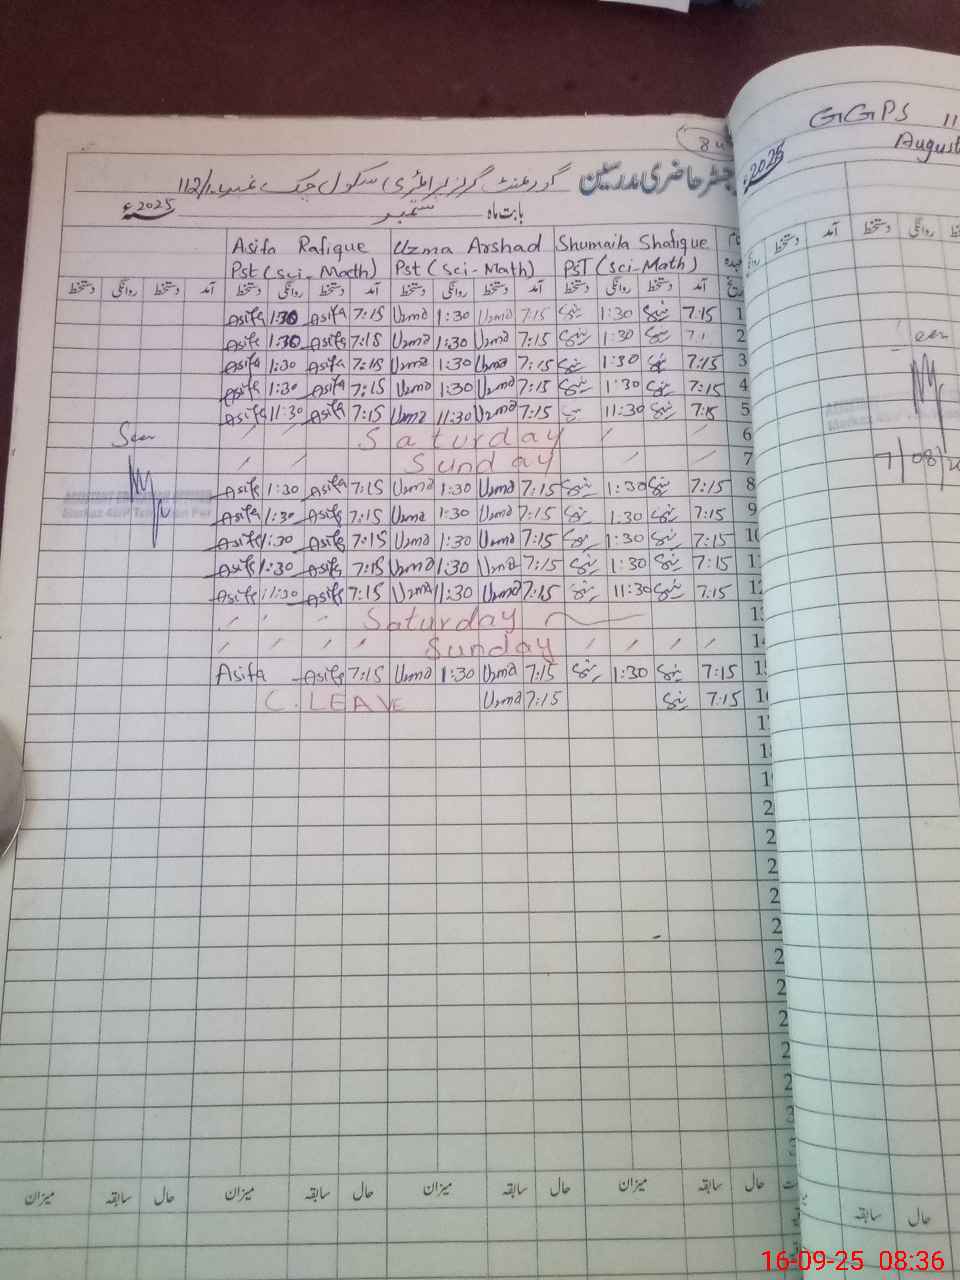 GGPS 11
August
2025
رجسٹر حاضری مدرسین گورنمنٹ گرلز پرائمری سکول چک نمبر 112/1
بابت ماہ ستمبر 2025ء
Asifa Rafique Uzma Arshad Shumaila Shafique نام
Pst (Sci-Math) Pst (Sci-Math) PST (Sci-Math) عہدہ
دستخط روانگی دستخط آمد دستخط روانگی دستخط آمد دستخط روانگی دستخط آمد دستخط روانگی دستخط آمد تاریخ
Asifa 1:30 Asifa 7:15 Uzma 1:30 Uzma 7:15 1:30 7:15 1
Asifa 1:30 Asifa 7:15 Uzma 1:30 Uzma 7:15 1:30 2
Asifa 1:30 Asifa 7:15 Uzma 1:30 Uzma 7:15 1:30 7:15 3
Asifa 1:30 Asifa 7:15 Uzma 1:30 Uzma 7:15 1:30 7:15 4
Asifa 11:30 Asifa 7:15 Uzma 11:30 Uzma 7:15 11:30 7:15 5
Seen Saturday 6
Sunday 7
Asifa 1:30 Asifa 7:15 Uzma 1:30 Uzma 7:15 1:30 7:15 8
ASSISTANT EDUCATION OFFICER
Asifa 1:30 Asifa 7:15 Uzma 1:30 Uzma 7:15 1:30 7:15 9
Asifa 1:30 Asifa 7:15 Uzma 1:30 Uzma 7:15 1:30 7:15 10
Asifa 1:30 Asifa 7:15 Uzma 1:30 Uzma 7:15 1:30 7:15 11
Asifa 11:30 Asifa 7:15 Uzma 11:30 Uzma 7:15 11:30 7:15 12
Saturday 13
Sunday 14
Asifa Asifa 7:15 Uzma 1:30 Uzma 7:15 1:30 7:15 15
C. LEAVE Uzma 7:15 7:15 16
میزان سابقہ حال میزان سابقہ حال میزان سابقہ حال میزان سابقہ حال
دستخط آمد دستخط روانگی
7/08/2
سابقہ حال
16-09-25 08:36